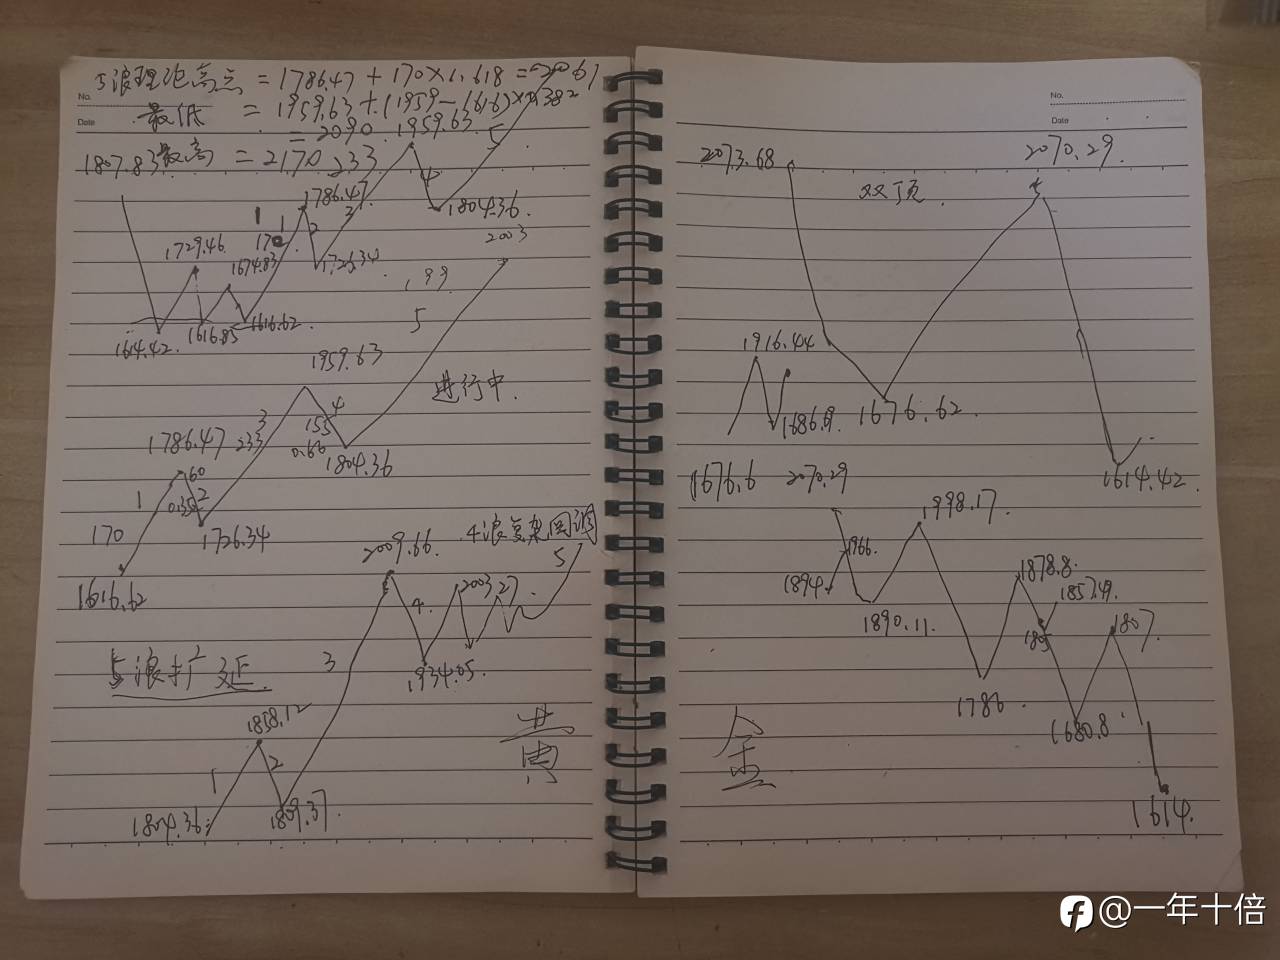 5浪理论高点 = 1786.47 + 170×1.618 = 2061
No.
最低 = 1959.63 + (1959-1616)×0.382
Date
= 2090 1959.63 5
1807.83 最高 = 2170 233
1786.47 4
1 1 3 1804.36
1729.46 170 2 2003
1674.83 1726.34
199
1614.42 1616.85 1616.62
5
1959.63
进行中
3 4
1786.47 233 155
60 0.66 1804.36
1 0.35 2
170 1726.34
2009.66 4浪复杂回调
5
1616.62 4 2003.27
5浪扩延 3 1934.05
1858.12 黄
1 2
1804.36 1809.37
No.
Date
2073.68 2070.29
双顶
1916.44
1686.9 1676.62
1676.6 2070.29 1614.42
1998.17
1966
1894 1878.8
1857.49
1890.11 1805 1807
1786
金 1680.8
1614.
@一年十倍